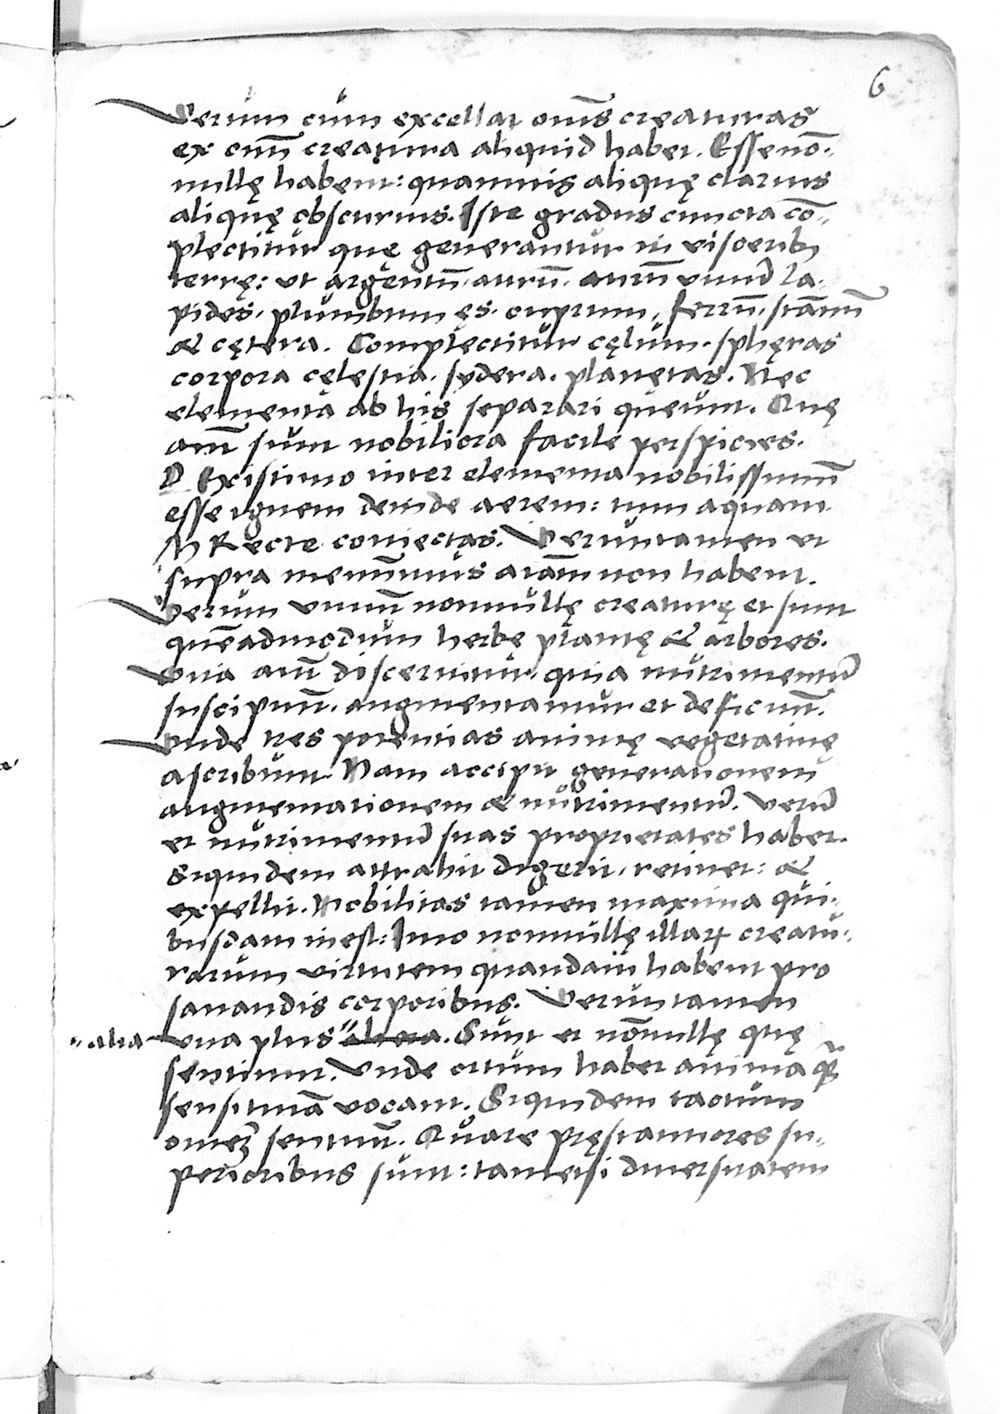 6
Verum cum excellat oms̄ creaturas
ex omī creatura aliquid habet. Esse nō-
nullę habent: quamuis aliquę clarius
aliquę obscurius. Iste gradus cuncta cō-
plectitur quę generantur in visceribꝫ
terrę: ut argentū. aurū. aurū viuū la-
pides. plumbum ęs. cuprum. ferrū. stannū
& cętera. Complectitur cęlum. sphęras
corpora cęlestia. sydera. planetas. Nec
elementa ab his separari queunt. Quę
aut̄ sunt nobiliora facile perspicies.
D Existimo inter elementa nobilissimū
esse ignem deinde aerem: tum aquam
M Recte coniectas. Veruntamen ut
supra meminimus aīam non habent.
Verum viuūt nonnullę creaturę et sunt
quēadmodum herbę plantę & arbores.
Vita aut̄ discernitur quia nutrimentū
suscipiunt. augmentantur et deficiunt.
Vnde tres potentias animę vegetatiuę
ascribunt. Nam accipit generationem
augmentationem & nutrimentū. Verū
et nutrimentū suas proprietates habet.
Siquidem attrahit digerit. retinet: &
expellit. Nobilitas tamen maxima qui-
busdam inest: Imo nonnullę illaꝝ creatu-
rarum virtutem quandam habent pro
sanandis corporibus. Veruntamen
" alia vna plus " altera. Sunt et nōnullę quę
sentiunt. Vnde ortum habet anima quā
sensitiuā vocant. Siquidem tactum
omēs sentiunt. Quare pręstantiores su-
perioribus sunt: tametsi diuersitatem